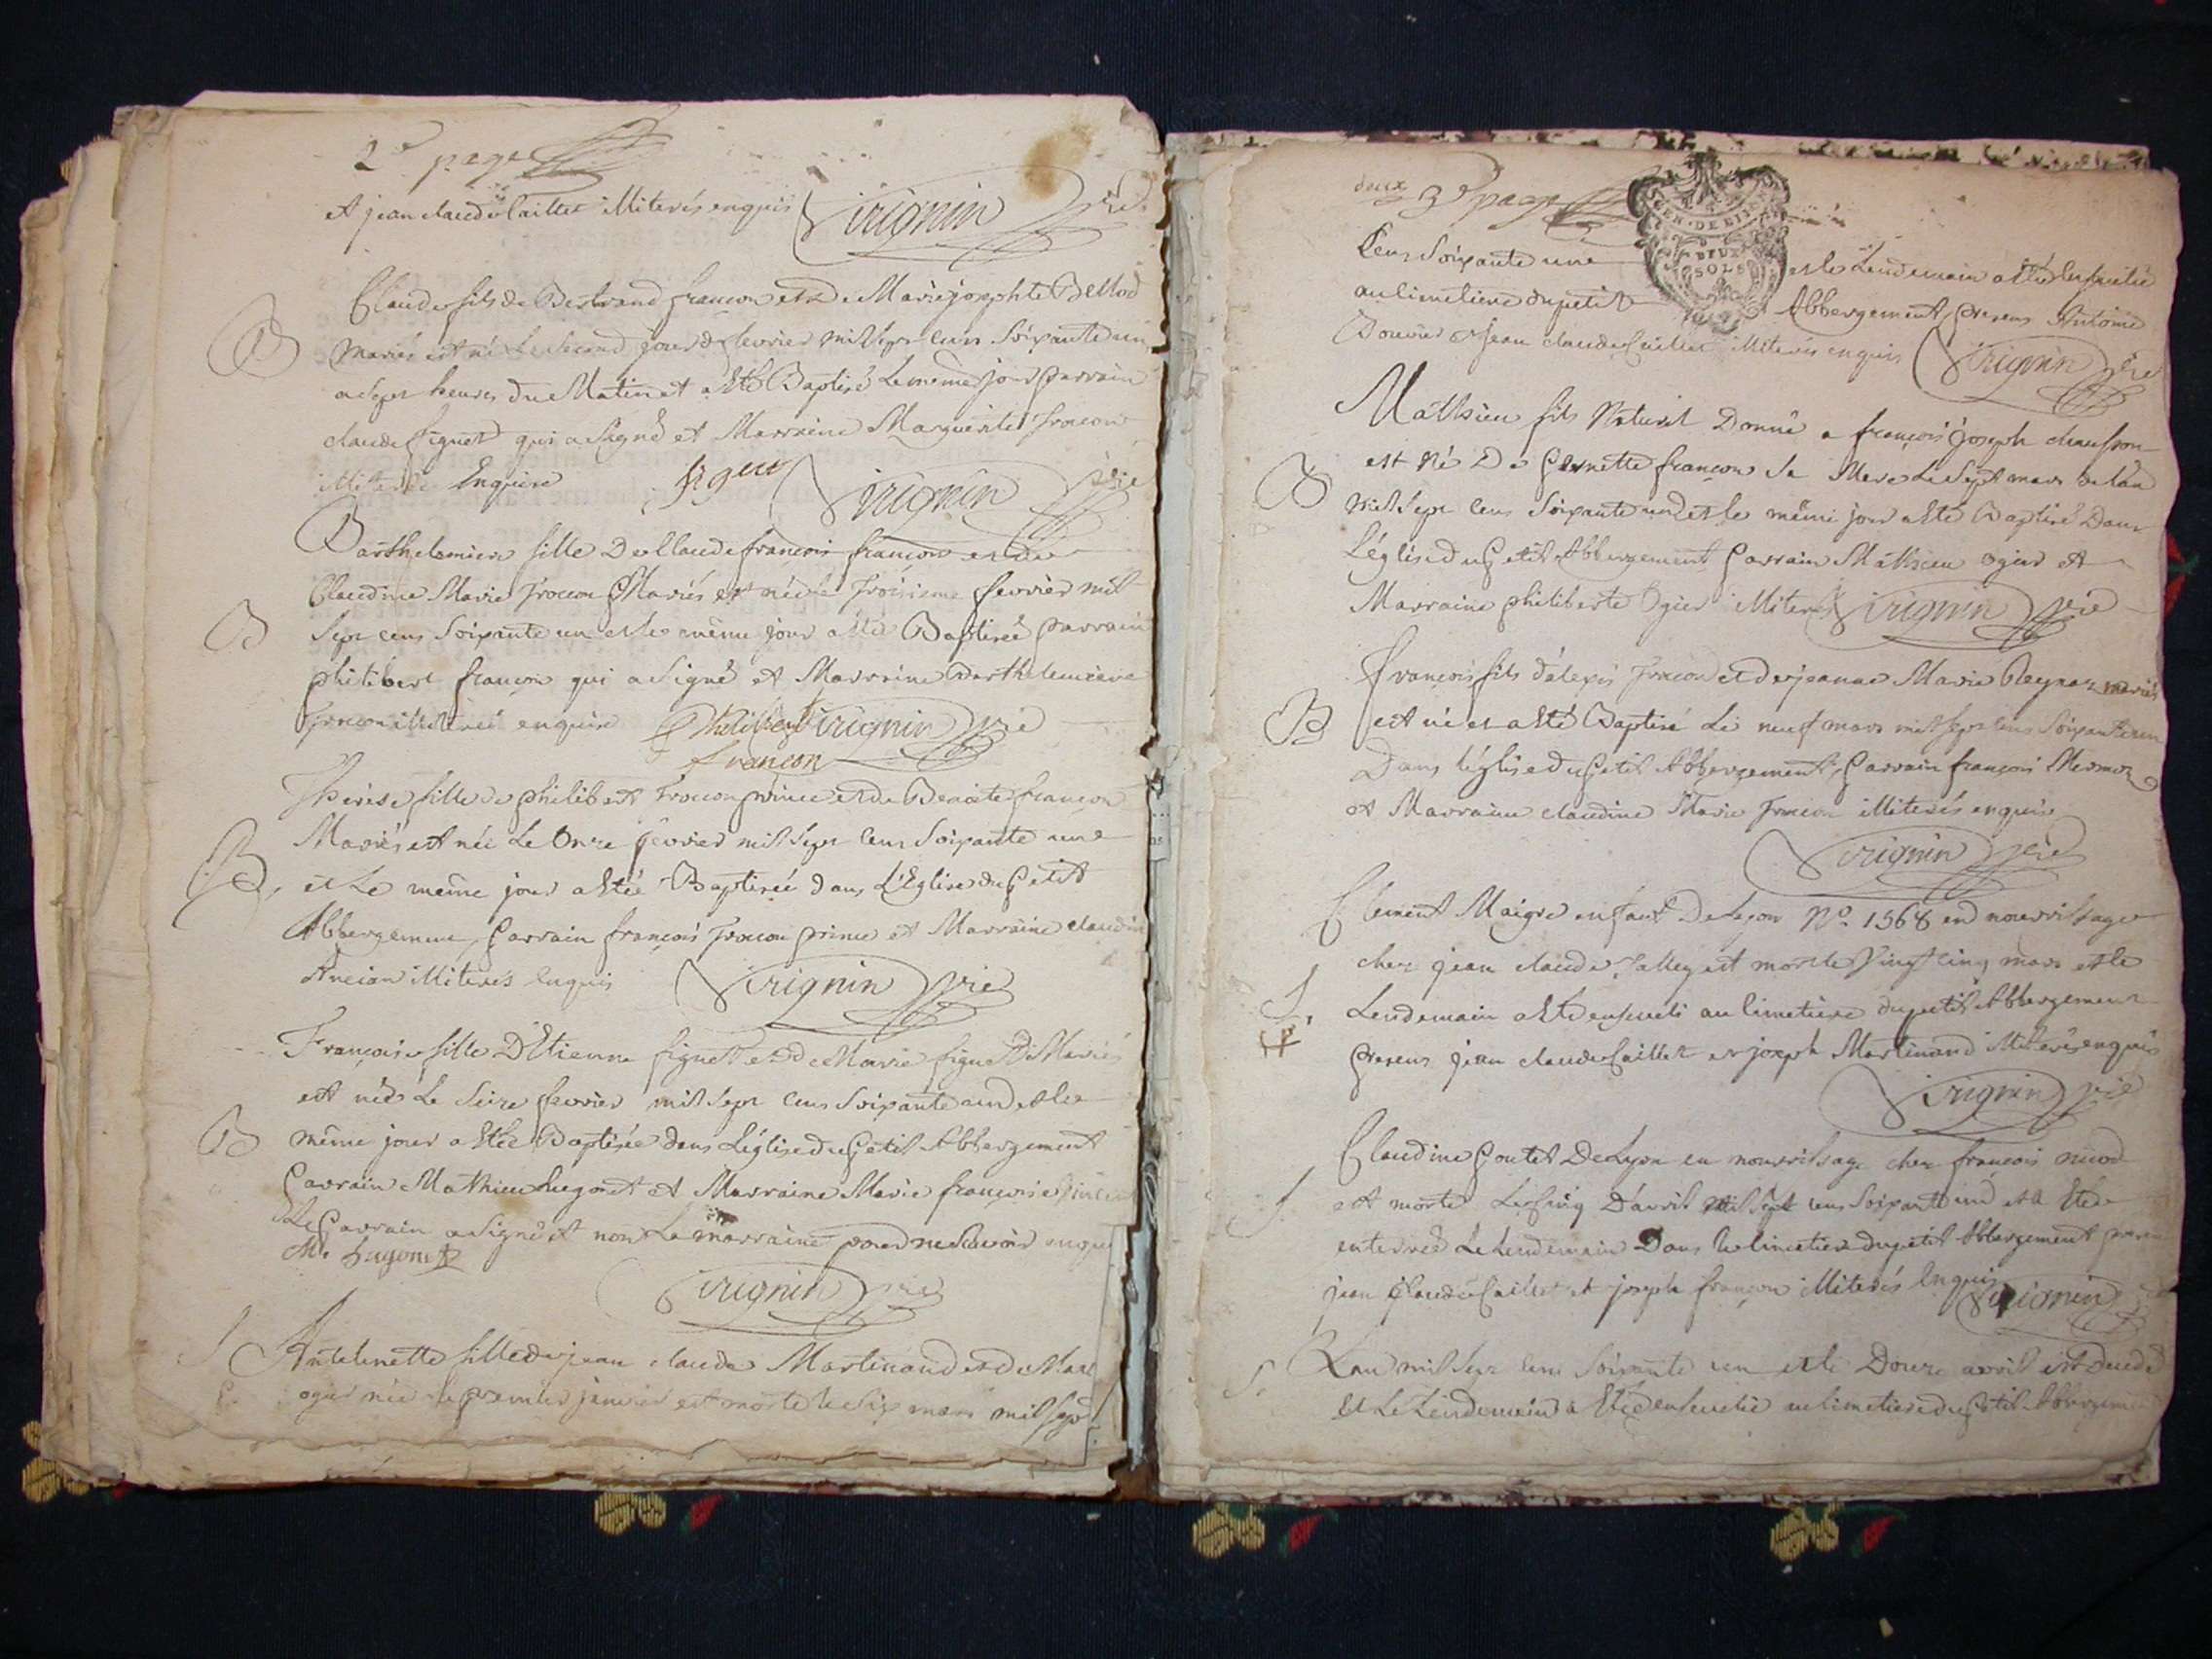 2e page
et jean claude Caillet illiterés enquis Virignin vic
Claude fils de Bertrand françon et de Marie josephte Bellod
B mariés est né le second jour de fevrier mil sept cens soixante un
a sept heures du matin et a Eté Baptisé le meme jour parrain
claude figuet qui a signé et Marraine Marguerite Trocon
illiterée Enquise figuet Virignin vic
Barthelemiere fille de Claude françois françon et de
Claudine Marie Trocon Mariés est née le Troisieme fevrier mil
B sept cens soixante un et le même jour a Eté Baptisée parrain
philibert françon qui a signé et Marraine Barthelemiere
Trocon illiterée enquise Philibert Virignin vic
françon
Therese fille de philibert Trocon prince et de Benoite françon
Mariés est née le Onze fevrier mil sept cens soixante une
B et le même jour a Etée Baptisée dans L'Eglise du Petit
Abbergement, Parrain françois Trocon prince et Marraine claudine
Ancian illiterés enquis Virignin vic
Françoise fille D'Etienne figuet et de Marie figuet Mariés
est née Le seize fevrier mil sept cens soixante un et le
B même jour a Etée Baptisée dans L'église du Petit Abbergement
Parrain Mathieu hugonet et Marraine Marie françoise
Le Parrain a signé et non La marraine pour ne scavoir enquise
M. hugonet
Virignin vic
S Anthelmette fille de jean claude Martinand et de Marie
ogier née le premier janvier est morte le six mars mil sept
deux 3e page
GEN. DE
DEUX
SOLS
Cens soixante une et le Lendemain a Eté Ensevelie
au cimetiere du petit Abbergement, presens Antoine
Bouvier et jean claude Caillet illiterés enquis Virignin vic
Mathieu fils Naturel Donné a françois joseph chausson
est né De Pernette françon sa Mere Le sept mars de l'an
B mil sept cens soixante un et le même jour a Eté Baptisé Dans
L'église du Petit Abbergement Parrain Mathieu ogier et
Marraine philiberte Ogier illiterés Virignin vic
François fils d'alexis Trocon et de jeanne Marie Reynaz mariés
B est né et a Eté Baptisé Le neuf mars mil sept cens soixante un
Dans l'église du Petit Abbergement, Parrain françois Mermoz
et Marraine claudine Marie Trocon illiterés enquis
Virignin vic
Clement Maigre enfant De Lyon No. 1568 en nourrissage
chez jean claude Jalley est mort le Vingt cinq mars et le
S. Lendemain a Eté enseveli au cimetiere du petit Abbergement
presens jean claude Caillet et joseph Martinand illiterés enquis
Virignin vic
Claudine Goutet De Lyon en nourrissage chez françois
S. est morte Le cinq D'avril mil sept cens soixante un et a Eté
enterrée Le Lendemain Dans le cimetiere du petit Abbergement presens
jean Claude Caillet et joseph françon illiterés Enquis Virignin
S. L'an mil sept cens soixante un et le Douze avril est decedé
et Le Lendemain a Eté ensevelie au cimetiere du Petit Abbergement